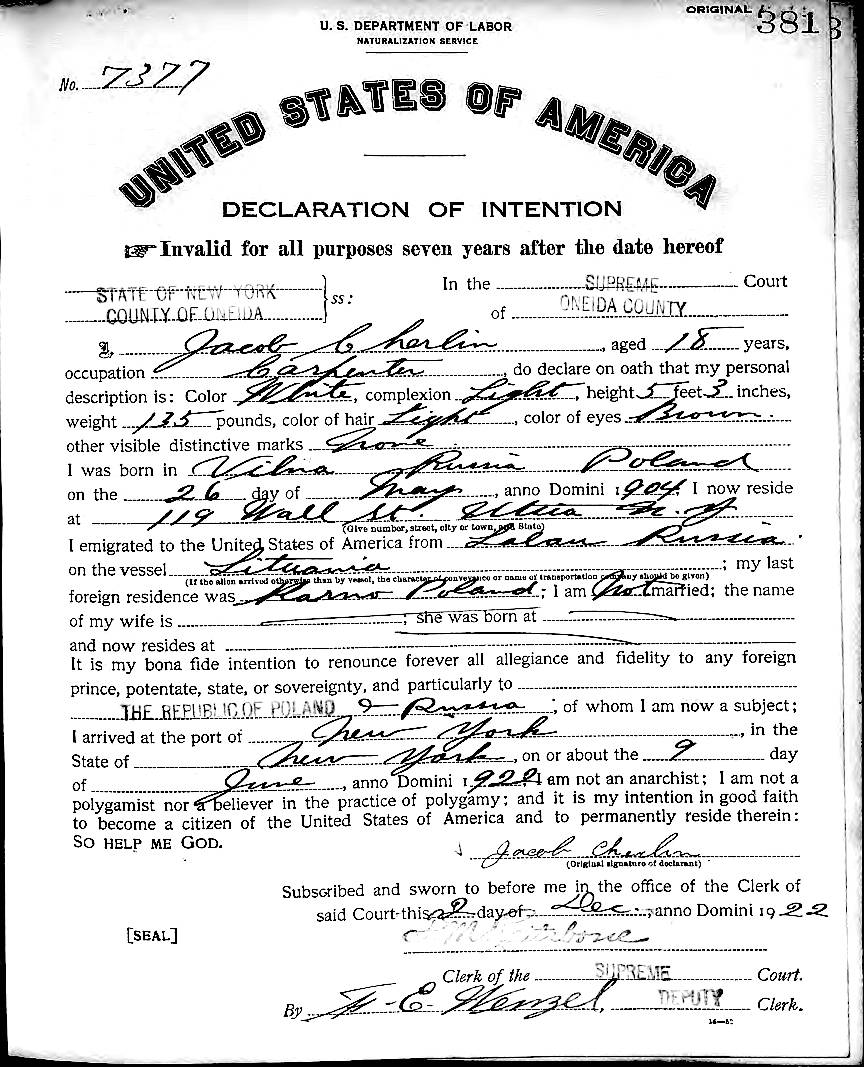 ORIGINAL
3813
U. S. DEPARTMENT OF LABOR
NATURALIZATION SERVICE
No. 7377
UNITED STATES OF AMERICA
DECLARATION OF INTENTION
Invalid for all purposes seven years after the date hereof
STATE OF NEW YORK
COUNTY OF ONEIDA
ss:
In the SUPREME Court
of ONEIDA COUNTY
I, Jacob Cherlin, aged 18 years,
occupation Carpenter, do declare on oath that my personal
description is: Color White, complexion Light, height 5 feet 3 inches,
weight 135 pounds, color of hair Light, color of eyes Brown.
other visible distinctive marks None
I was born in Vilna Russia Poland
on the 26 day of May, anno Domini 1904. I now reside
at 119 Wall St. Utica N. Y
(Give number, street, city or town, and State)
I emigrated to the United States of America from Russia
on the vessel Lituania; my last
(If the alien arrived otherwise than by vessel, the character of conveyance or name of transportation company should be given)
foreign residence was Poland; I am Not married; the name
of my wife is ; she was born at
and now resides at
It is my bona fide intention to renounce forever all allegiance and fidelity to any foreign
prince, potentate, state, or sovereignty, and particularly to
THE REPUBLIC OF POLAND & Russia; of whom I am now a subject;
I arrived at the port of New York, in the
State of New York, on or about the 9 day
of June, anno Domini 1922 I am not an anarchist; I am not a
polygamist nor a believer in the practice of polygamy; and it is my intention in good faith
to become a citizen of the United States of America and to permanently reside therein:
SO HELP ME GOD.
Jacob Cherlin
(Original signature of declarant)
Subscribed and sworn to before me in the office of the Clerk of
said Court this day of Dec., anno Domini 1922
[SEAL]
Clerk of the SUPREME Court.
By F. E. Wenzel, DEPUTY Clerk.